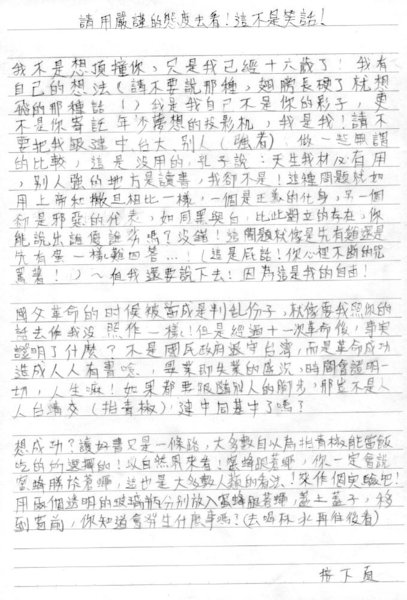 請用嚴謹的態度去看!這不是笑話!
我不是想頂撞你,只是我已經十六歲了!我有
自己的想法(請不要說那種,翅膀長硬了就想
飛的那種話!)我是我自己不是你的影子,更
不是你寄託年少夢想的投影机,我是我!請不
要把我跟建中、台大、別人(強者)做一起無謂
的比較,這是沒用的,孔子說:天生我材必有用
,別人強的地方是讀書,我卻不是!這種問題就如
用上帝和撒旦相比一樣,一個是正義的化身,另一個
卻是邪惡的代表,如同黑與白,比此獨立的存在,你
能說出誰優誰劣嗎?沒錯!這問題就像是先有雞還是
先有蛋一樣難回答...!(這是屁話!你心裡不斷的咒
罵著!)~但我還要說下去!因為這是我的自由!
國父革命的时候被當成是判乱份子,就像要我照你的
話去做我沒照作一樣!但是經過十一次革命後,事实
證明了什麼?不是國民政府退守台灣,而是革命成功
造成人人有書唸,畢業即失業的盛況,時間會證明一
切,人生嘛!如果都要跟隨別人的腳步,那豈不是人
人台清交(拍青椒),建中同基生了嗎?
想成功?讀好書又是一條路,大多數自以為拍青椒能當飯
吃的的選擇的!以自然界來看!蜜蜂跟蒼蠅,你一定會說
蜜蜂勝於蒼蠅,這也是大多數人類的看法!來作個实驗吧!
用兩個透明的玻璃瓶分別放入蜜蜂跟蒼蠅,蓋上蓋子,移
到窗前,你知道會發生什麼事嗎?(去喝杯水再往後看)
按下頁